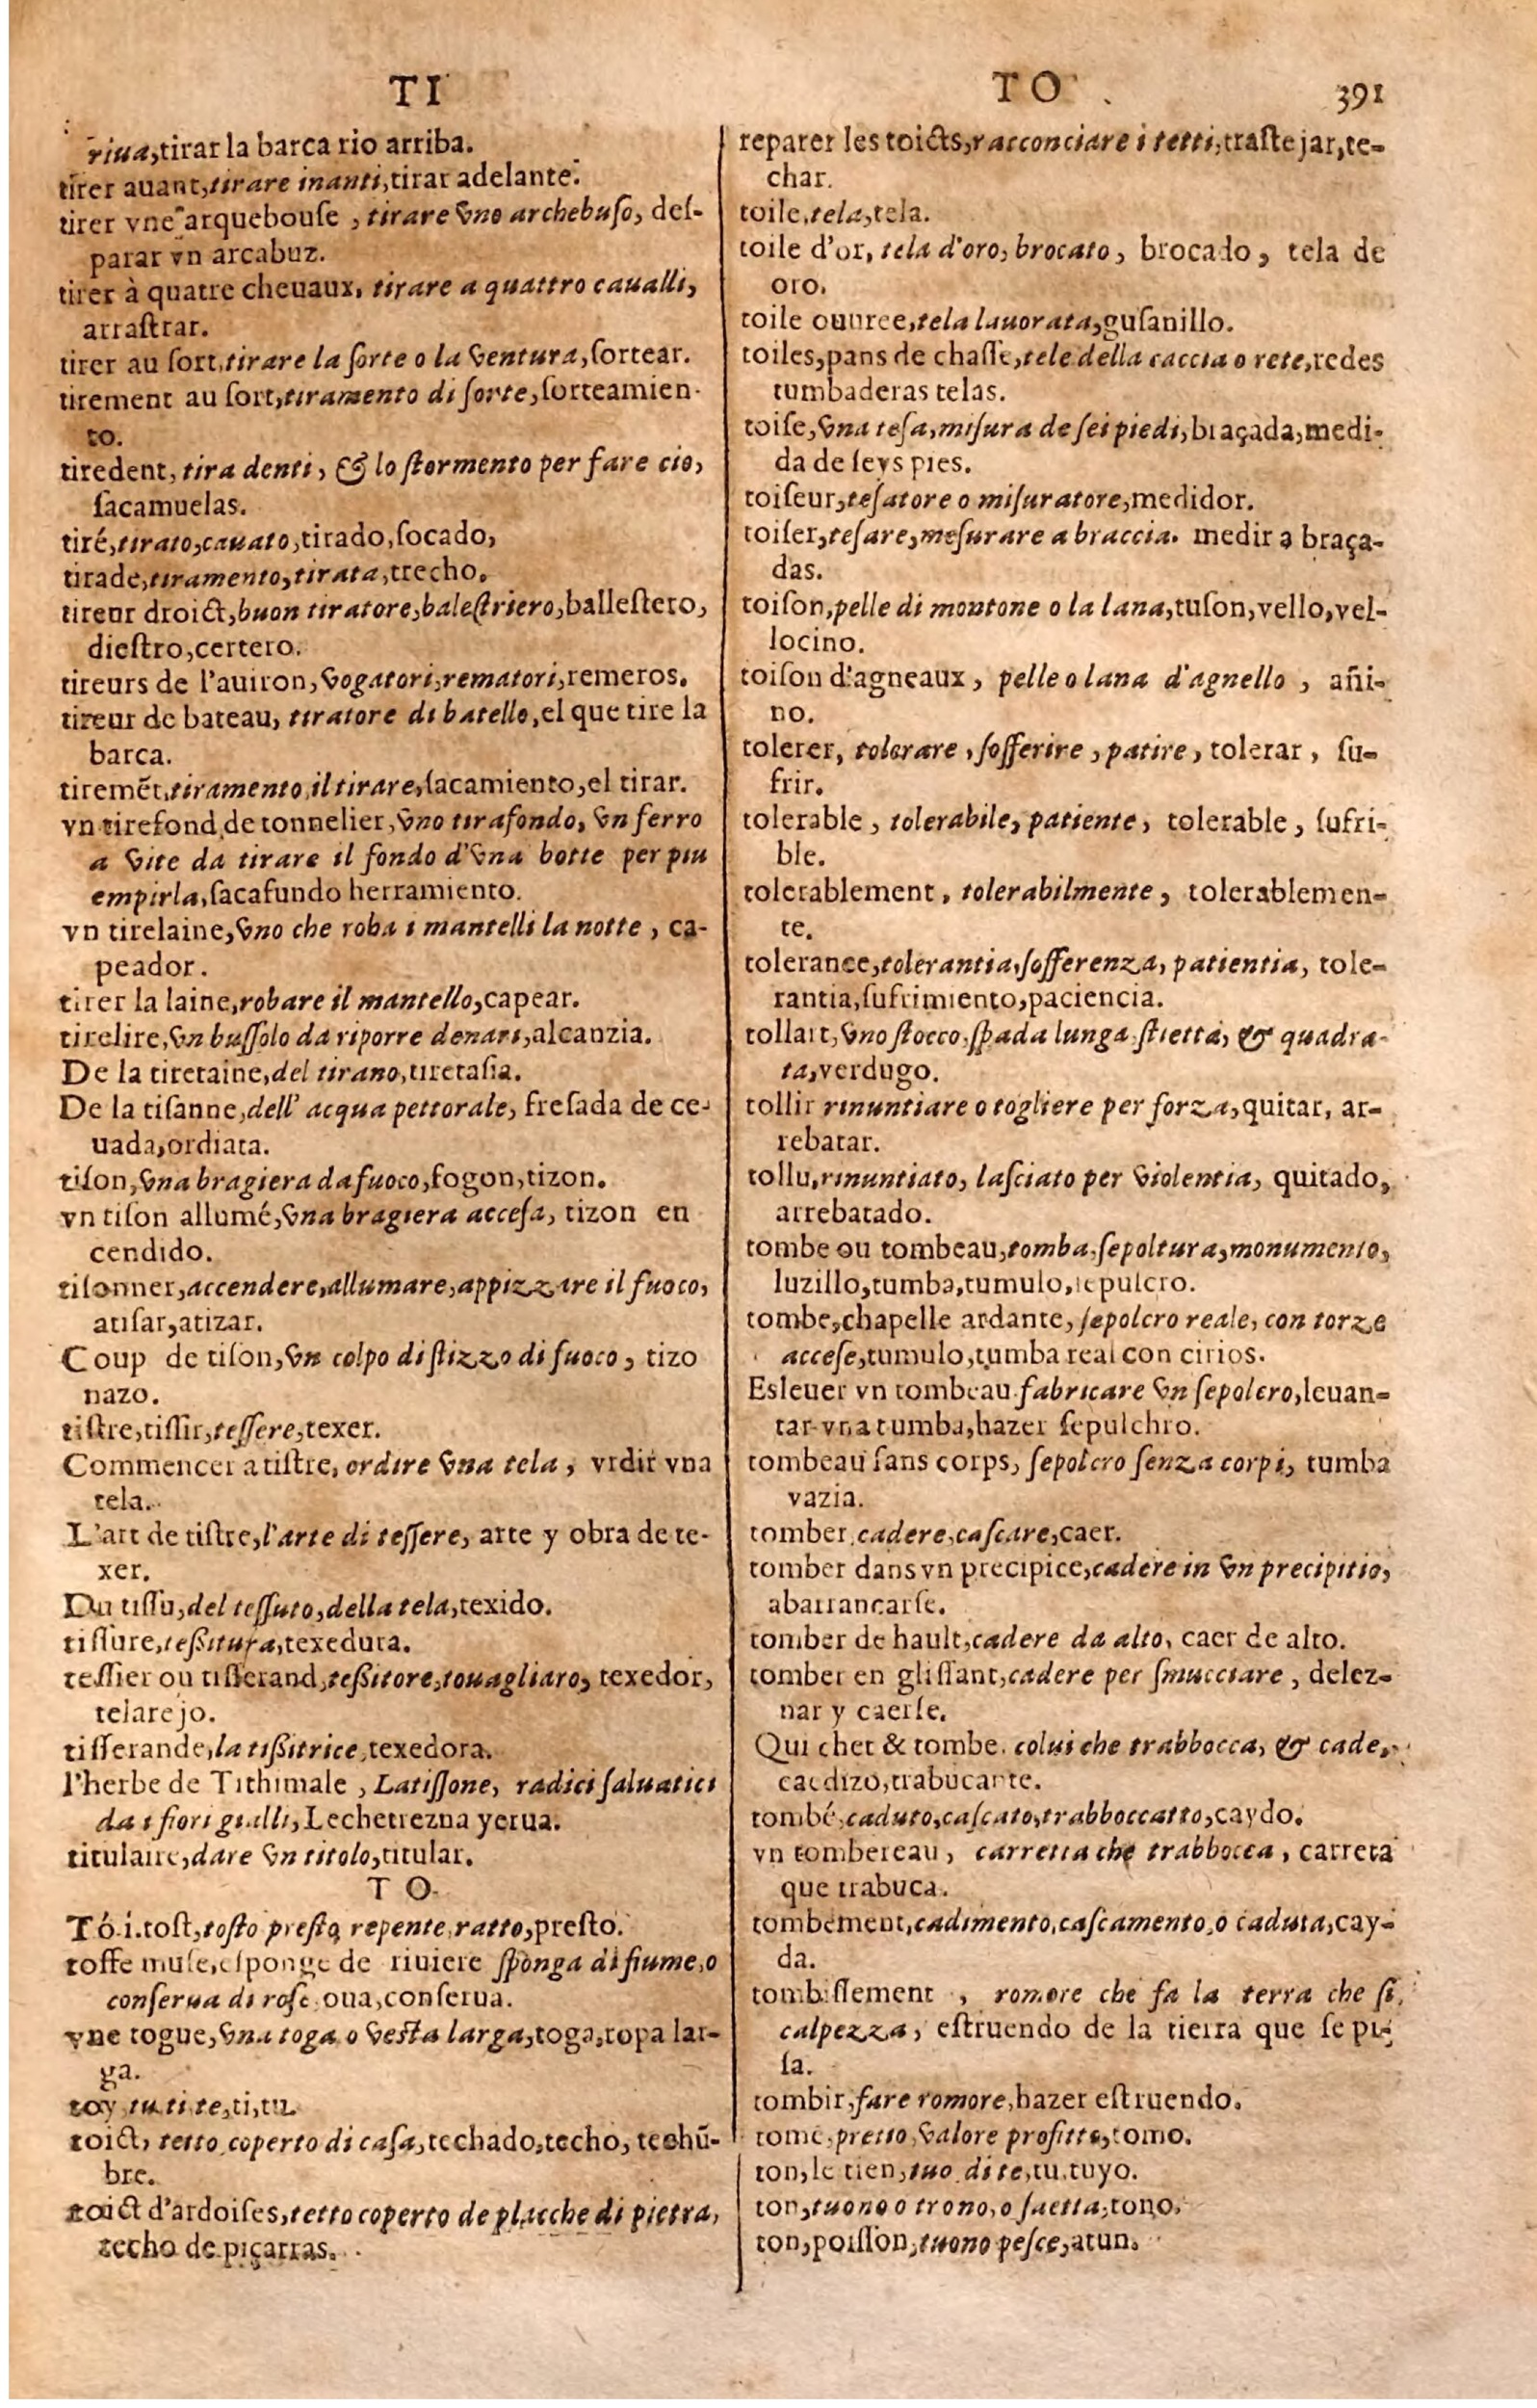 TI
riua,tirar la barca rio arriba.
tirer auant,tirare inanti,tirar adelante.
tirer vne arquebouſe , tirare vno archebuſo, deſ-
parar vn arcabuz.
tirer à quatre cheuaux, tirare a quattro caualli,
arraſtrar.
tirer au ſort,tirare la ſorte o la ventura,ſortear.
tirement au ſort,tiramento di ſorte,ſorteamien-
to.
tiredent, tira denti, & lo ſtormento per fare cio,
ſacamuelas.
tiré,tirato,cauato,tirado,ſocado,
tirade,tiramento,tirata,trecho.
tireur droict,buon tiratore,baleſtriero,balleſtero,
dieſtro,certero.
tireurs de l'auiron,vogatori,rematori,remeros.
tireur de bateau, tiratore di batello,el que tire la
barca.
tiremẽt,tiramento,il tirare,ſacamiento,el tirar.
vn tirefond de tonnelier,vno tirafondo, vn ferro
a vite da tirare il fondo d'vna botte per piu
empirla,ſacafundo herramiento.
vn tirelaine,vno che roba i mantelli la notte , ca-
peador.
tirer la laine,robare il mantello,capear.
tirelire,vn buſſolo da riporre denari,alcanzia.
De la tiretaine,del tirano,tiretaſia.
De la tiſanne,dell' acqua pettorale, freſada de ce-
uada,ordiata.
tiſon,vna bragiera da fuoco,fogon,tizon.
vn tiſon allumé,vna bragiera acceſa, tizon en
cendido.
tiſonner,accendere,allumare,appizzare il fuoco,
atiſar,atizar.
Coup de tiſon,vn colpo di ſtizzo di fuoco, tizo
nazo.
tiſtre,tiſſir,teſſere,texer.
Commencer a tiſtre, ordire vna tela , vrdir vna
tela.
L'art de tiſtre,l'arte di teſſere, arte y obra de te-
xer.
Du tiſſu,del teſſuto,della tela,texido.
tiſſure,teßitura,texedura.
teſſier ou tiſſerand,teßitore,touagliaro, texedor,
telarejo.
tiſſerande,la tißitrice,texedora.
l'herbe de Tithimale , Latiſſone, radici ſaluatici
da i fiori gialli,Lechetrezna yerua.
titulaire,dare vn titolo,titular.
T O
Tó.i.toſt,toſto preſto, repente,ratto,preſto.
toffe muſe,eſponge de riuiere ſponga di fiume,o
conſerua di roſe,oua,conſerua.
vne togue,vna toga o veſta larga,toga,ropa lar-
ga.
toy,tu.ti.te,ti,tu.
toict, tetto,coperto di caſa,techado,techo, techũ-
bre.
toict d'ardoiſes,tetto coperto de placche di pietra,
techo de piçarras.
TO
391
reparer les toicts,racconciare i tetti,traſtejar,te-
char.
toile,tela,tela.
toile d'or, tela d'oro, brocato, brocado, tela de
oro.
toile ouuree,tela lauorata,guſanillo.
toiles,pans de chaſſe,tele della caccia o rete,redes
tumbaderas telas.
toiſe,vna teſa,miſura de ſei piedi,braçada,medi-
da de ſeys pies.
toiſeur,teſatore o miſuratore,medidor.
toiſer,teſare,meſurare a braccia. medir a braça-
das.
toiſon,pelle di montone o la lana,tuſon,vello,vel-
locino.
toiſon d'agneaux , pelle o lana d'agnello , añi-
no.
tolerer, tolerare , ſofferire , patire, tolerar , ſu-
frir.
tolerable , tolerabile, patiente, tolerable , ſufri-
ble.
tolerablement, tolerabilmente, tolerablemen-
te.
tolerance,tolerantia,ſofferenza, patientia, tole-
rantia,ſufrimiento,paciencia.
tollart, vno ſtocco,ſpada lunga ſtretta, & quadra-
ta,verdugo.
tollir rinuntiare o togliere per forza,quitar, ar-
rebatar.
tollu,rinuntiato, laſciato per violentia, quitado,
arrebatado.
tombe ou tombeau,tomba,ſepoltura,monumento,
luzillo,tumba,tumulo,ſepulcro.
tombe,chapelle ardante, ſepolcro reale, con torze
acceſe,tumulo,tumba real con cirios.
Esleuer vn tombeau fabricare vn ſepolcro,leuan-
tar vna tumba,hazer ſepulchro.
tombeau ſans corps, ſepolcro ſenza corpi, tumba
vazia.
tomber,cadere,caſcare,caer.
tomber dans vn precipice,cadere in vn precipitio,
abarrancarſe.
tomber de hault,cadere da alto, caer de alto.
tomber en gliſſant,cadere per ſmucciare , delez-
nar y caerſe.
Qui chet & tombe, colui che trabbocca, & cade,
caedizo,trabucante.
tombé,caduto,caſcato,trabboccatto,caydo.
vn tombereau , carretta che trabbocca , carreta
que trabuca.
tombement,cadimento,caſcamento,o caduta,cay-
da.
tombiſſement , romore che fa la terra che ſi
calpezza, eſtruendo de la tierra que ſe pi-
ſa.
tombir,fare romore,hazer eſtruendo.
tome,pretto,valore profitto,tomo.
ton,le tien,tuo di te,tu.tuyo.
ton,tuono o trono,o ſaetta,tono.
ton,poiſſon,tuono peſce,atun.